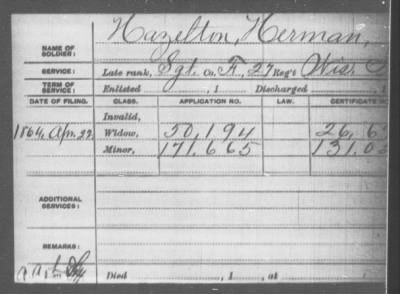 NAME OF SOLDIER: Hazelton, Herman,
SERVICE: Late rank, Sgt. Co. F, 27 Reg't Wis.
TERM OF SERVICE: Enlisted , 1 Discharged , 1
DATE OF FILING. CLASS. APPLICATION NO. LAW. CERTIFICATE
Invalid,
1864, Apr. 22. Widow, 50,194 26,6
Minor, 171.665 131.0
ADDITIONAL SERVICES:
REMARKS:
Died , 1 , at